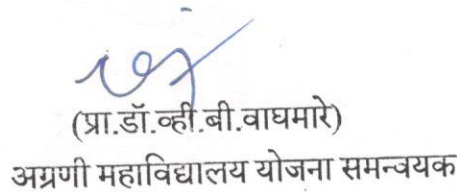 (प्रा.डॉ.व्ही.बी.वाघमारे)
अग्रणी महाविद्यालय योजना समन्वयक